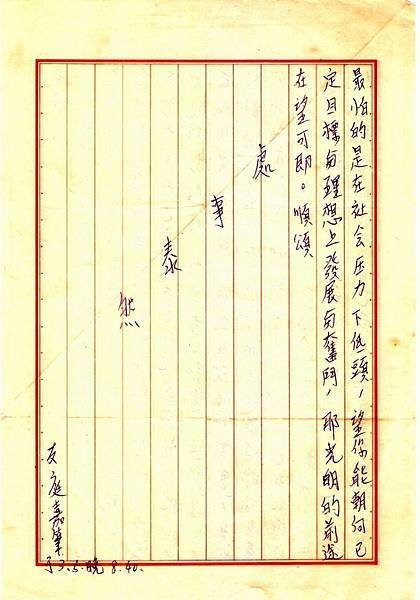 最怕的是在社会压力下低頭，望你能朝向已
定目標与理想上發展与奮鬥，耶光明的前途
在望可即。順頌
處
事
泰
然
友庭嘉筆
3.5.晚 8.40.